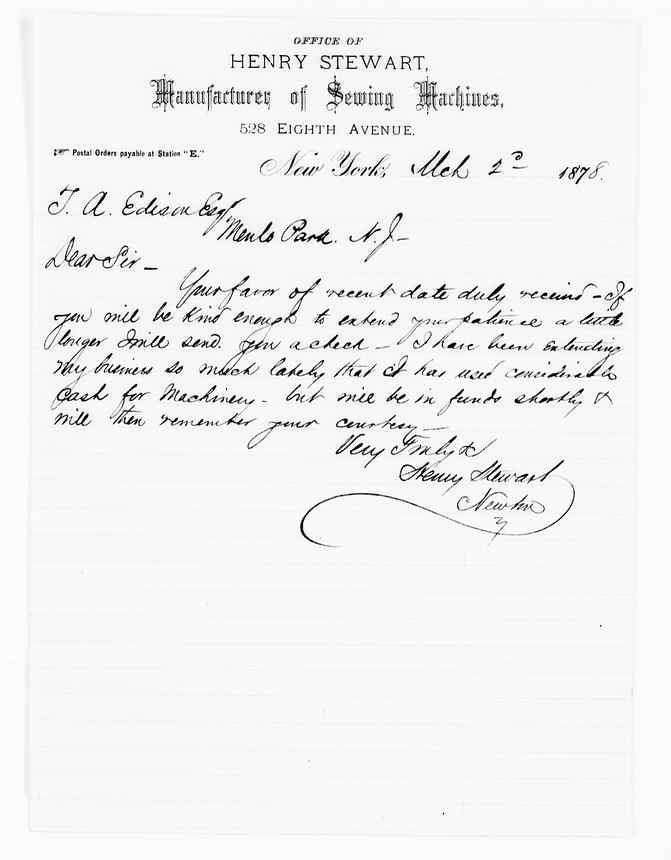 OFFICE OF
HENRY STEWART,
Manufacturer of Sewing Machines,
528 EIGHTH AVENUE.
☞ Postal Orders payable at Station "E."
New York, Mch 2d 1878.
T. A. Edison Esqr
Menlo Park. N. J—
Dear Sir—
Your favor of recent date duly received – If
you will be kind enough to extend your patience a little
longer I will send you a check — I have been extending
my business so much lately that it has used considerable
Cash for Machinery – but will be in funds shortly &
will then remember your courtesy —
Very Truly &
Henry Stewart